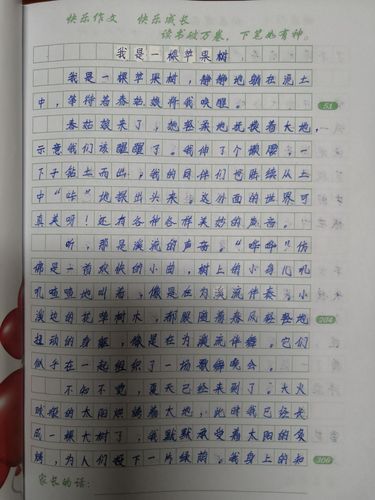 快乐作文 快乐成长
读书破万卷，下笔如有神。
我是一棵苹果树
我是一棵苹果树，静静地躺在泥土
中，等待着春姑娘将我唤醒。
51
春姑娘来了，她轻柔地抚摸着大地，
示意我们该醒醒了。我伸了个懒腰，一
下子钻出而出，我的同伴们也陆续从土
中“哗”地探出头来，这外面的世界可
真美呀！还有各种各样美妙的声音。
听，那是溪流的声音，“哗哗”仿
佛是一首欢快的小曲，树上的小鸟儿叽
叽喳喳地叫着，像是在为溪流伴奏。小
溪边的花草树木，都跟随着春风轻轻地
204
扭动的身躯，像是在为溪流伴舞。它们
似乎在一起组织了一场歌舞晚会。
不知不觉，夏天已经来到了。大火
球般的太阳烘烤着大地，此时我已经长
成一棵大树了，我默默承受着太阳的炙
烤，为人们投下一片绿荫。我身上的和
306
家长的话：